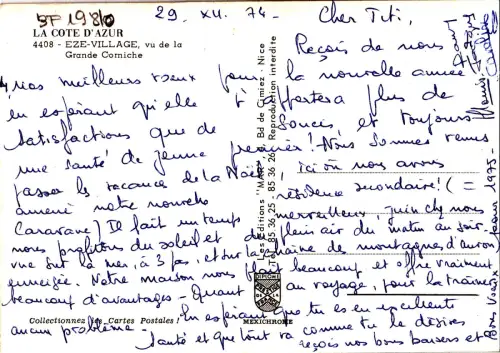 SP 1980
LA COTE D'AZUR
4408 - EZE-VILLAGE, vu de la
Grande Corniche
29. XII. 74 -
Cher Titi,
Reçois de nous
nos meilleurs vœux pour la nouvelle année
en espérant qu'elle t'apportera plus de
satisfactions que de soucis, et toujours
une santé de jeune premier! Nous sommes venus
passer les vacances de la Noël, ici où nous avons
amené notre nouvelle résidence secondaire! (=
Caravane) Il fait un temps merveilleux, juin chez nous
nous profitons du soleil et du plein air du matin au soir -
vue sur la mer, à 3 pas, et sur la chaîne de montagnes d'auron
enneigée. Notre maison nous plaît beaucoup et offre vraiment
beaucoup d'avantages - Quant au voyage, pour la traîner
aucun problème - En espérant que tu es en excellente
santé et que tout va comme tu le désires
reçois nos bons baisers et
1975 -
Les Editions "MAR" Bd de Cimiez - Nice
Tél. 85.36.25 - 85.36.26
Reproduction interdite
Collectionnez les Cartes Postales !
MEXICHROME